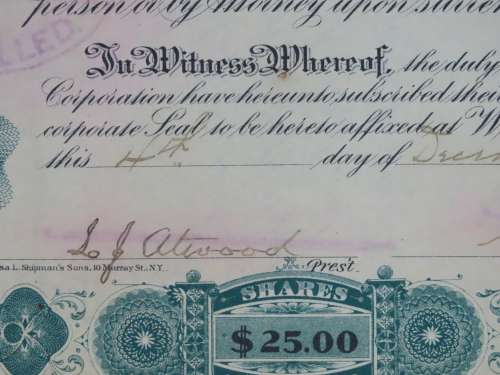 person or by Attorney upon surren
LLED.
In Witness Whereof, the duly
Corporation have hereunto subscribed thei
corporate Seal to be hereto affixed at W
this 4th day of Decem
L J Atwood
Pres't.
sa L. Shipman's Sons, 10 Murray St., N.Y.
SHARES
$25.00